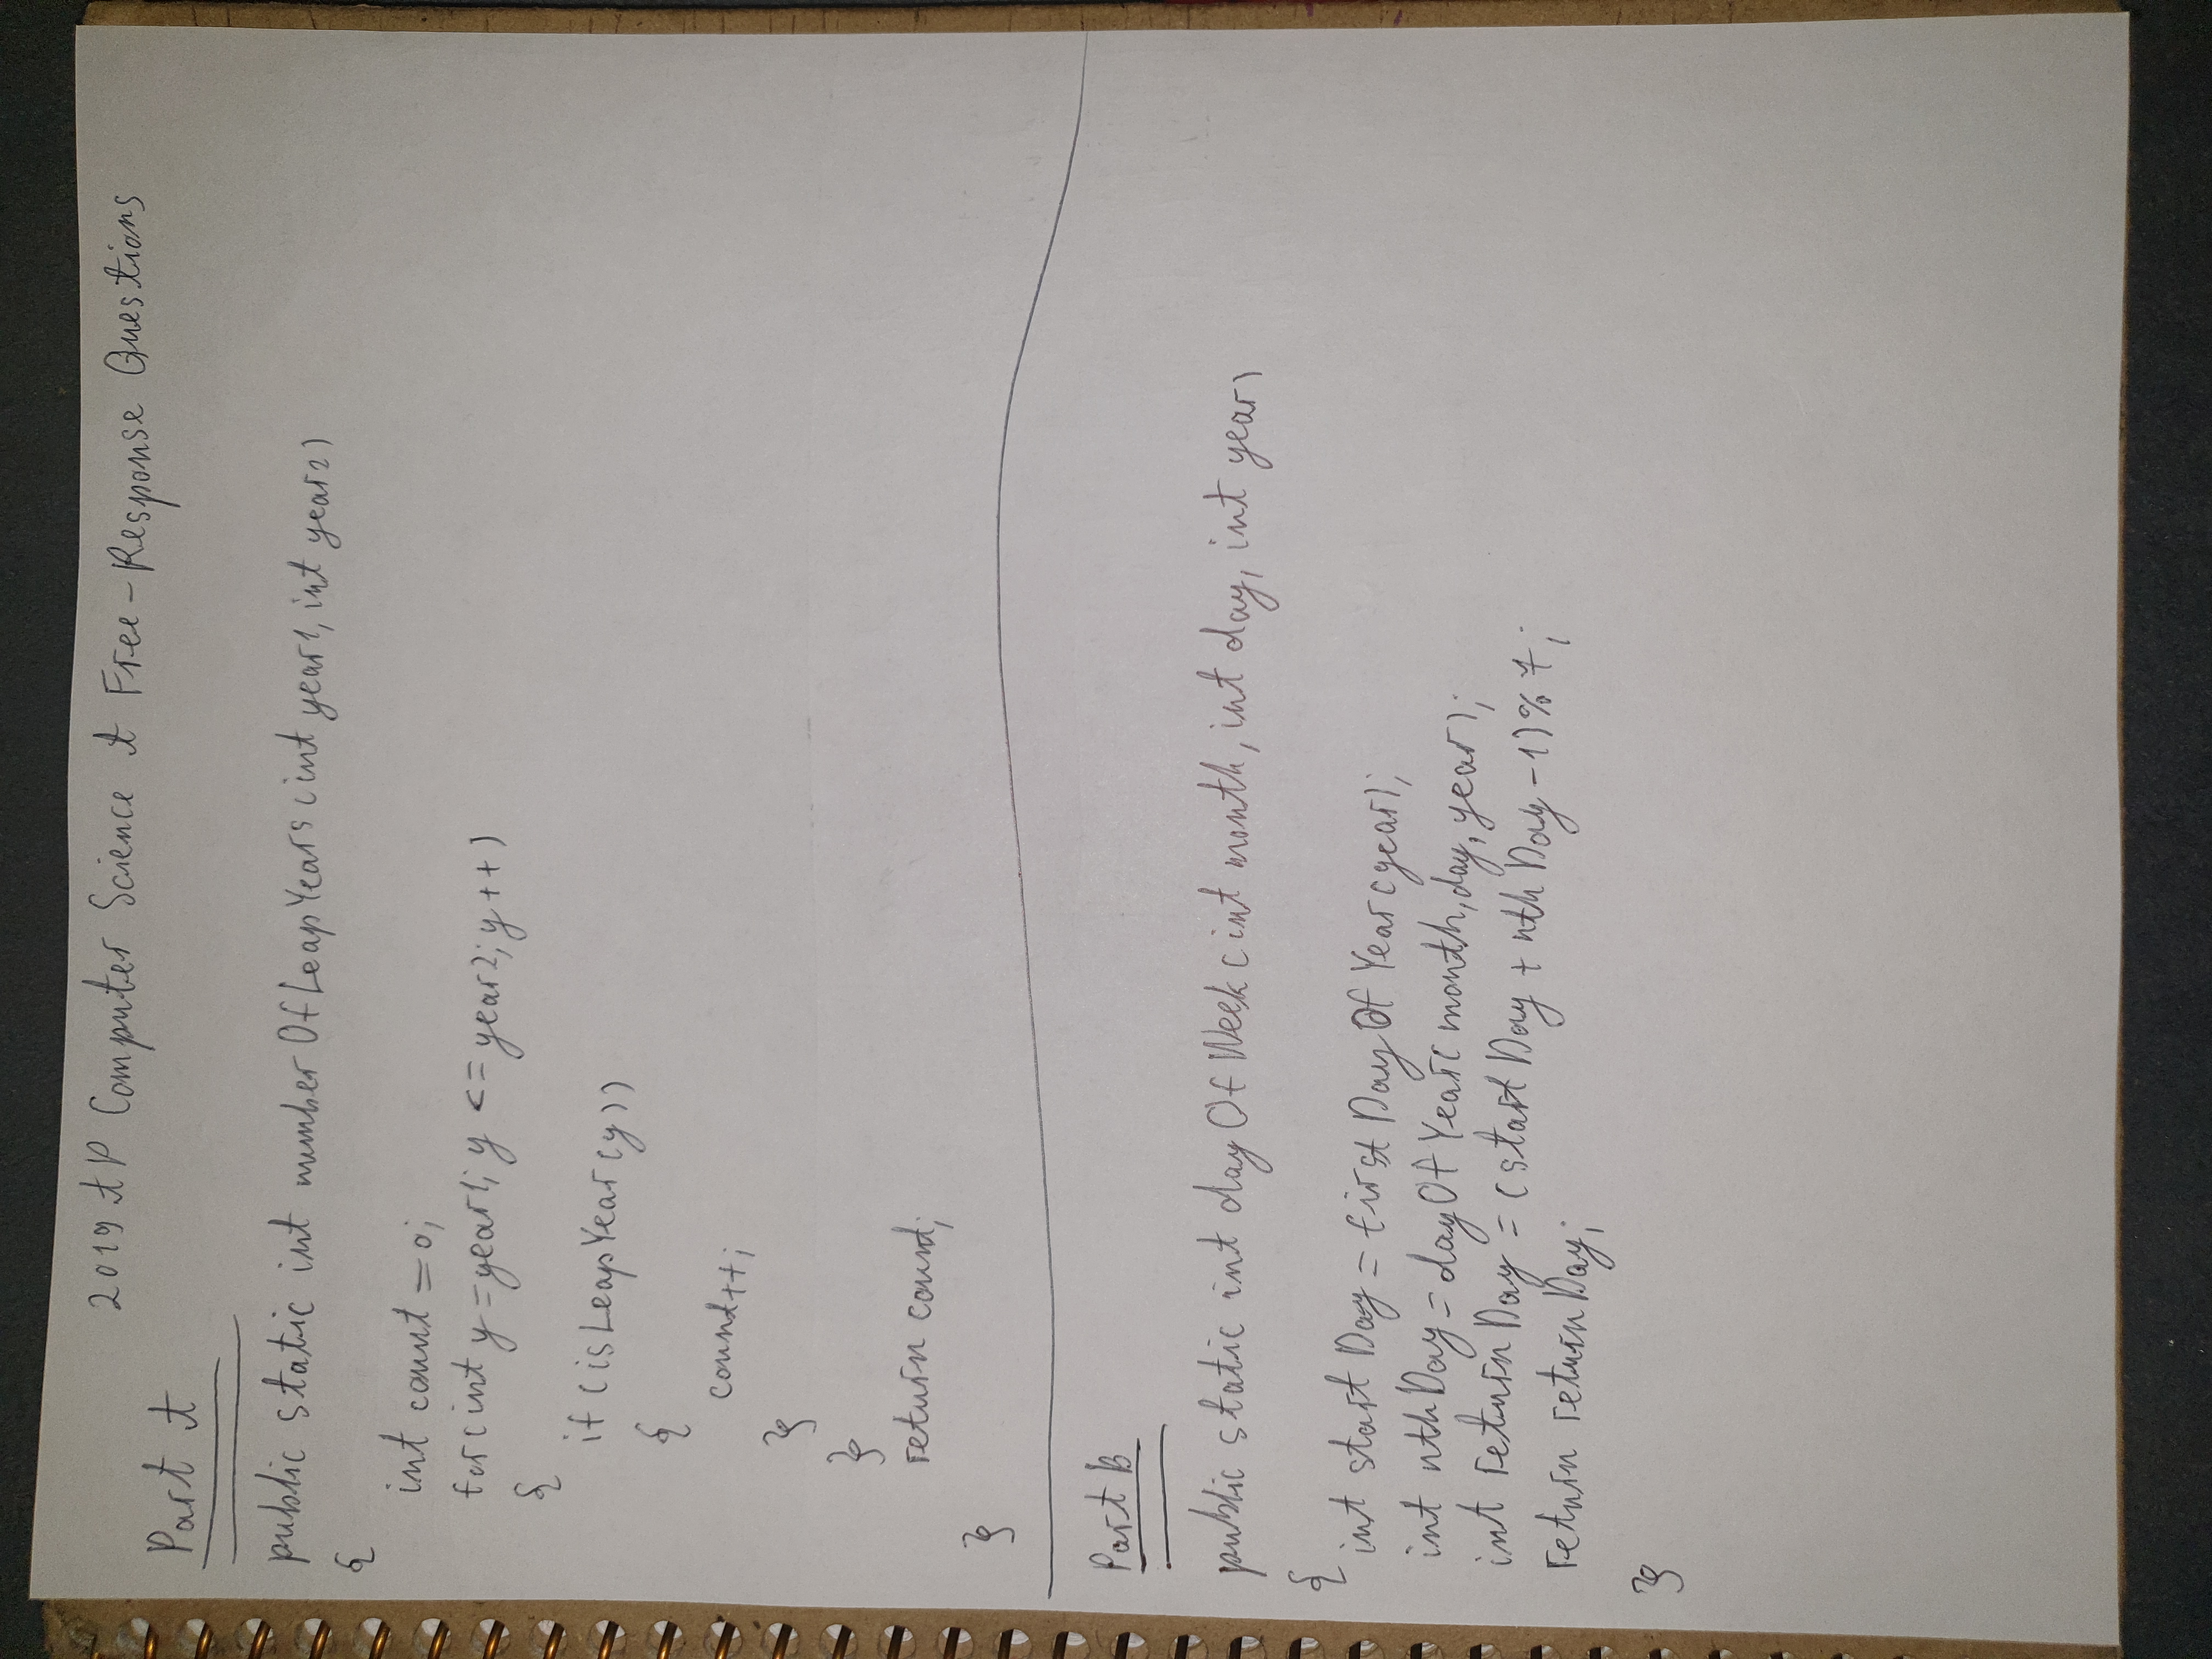 2019 AP Computer Science A Free-Response Questions
Part A
public static int numberOfLeapYears(int year1, int year2)
{
int count = 0;
for(int y = year1; y <= year2; y++)
{
if (isLeapYear(y))
{
count++;
}
}
return count;
}
Part B
public static int dayOfWeek(int month, int day, int year)
{
int startDay = firstDayOfYear(year);
int nthDay = dayOfYear(month, day, year);
int returnDay = (startDay + nthDay - 1) % 7;
return returnDay;
}